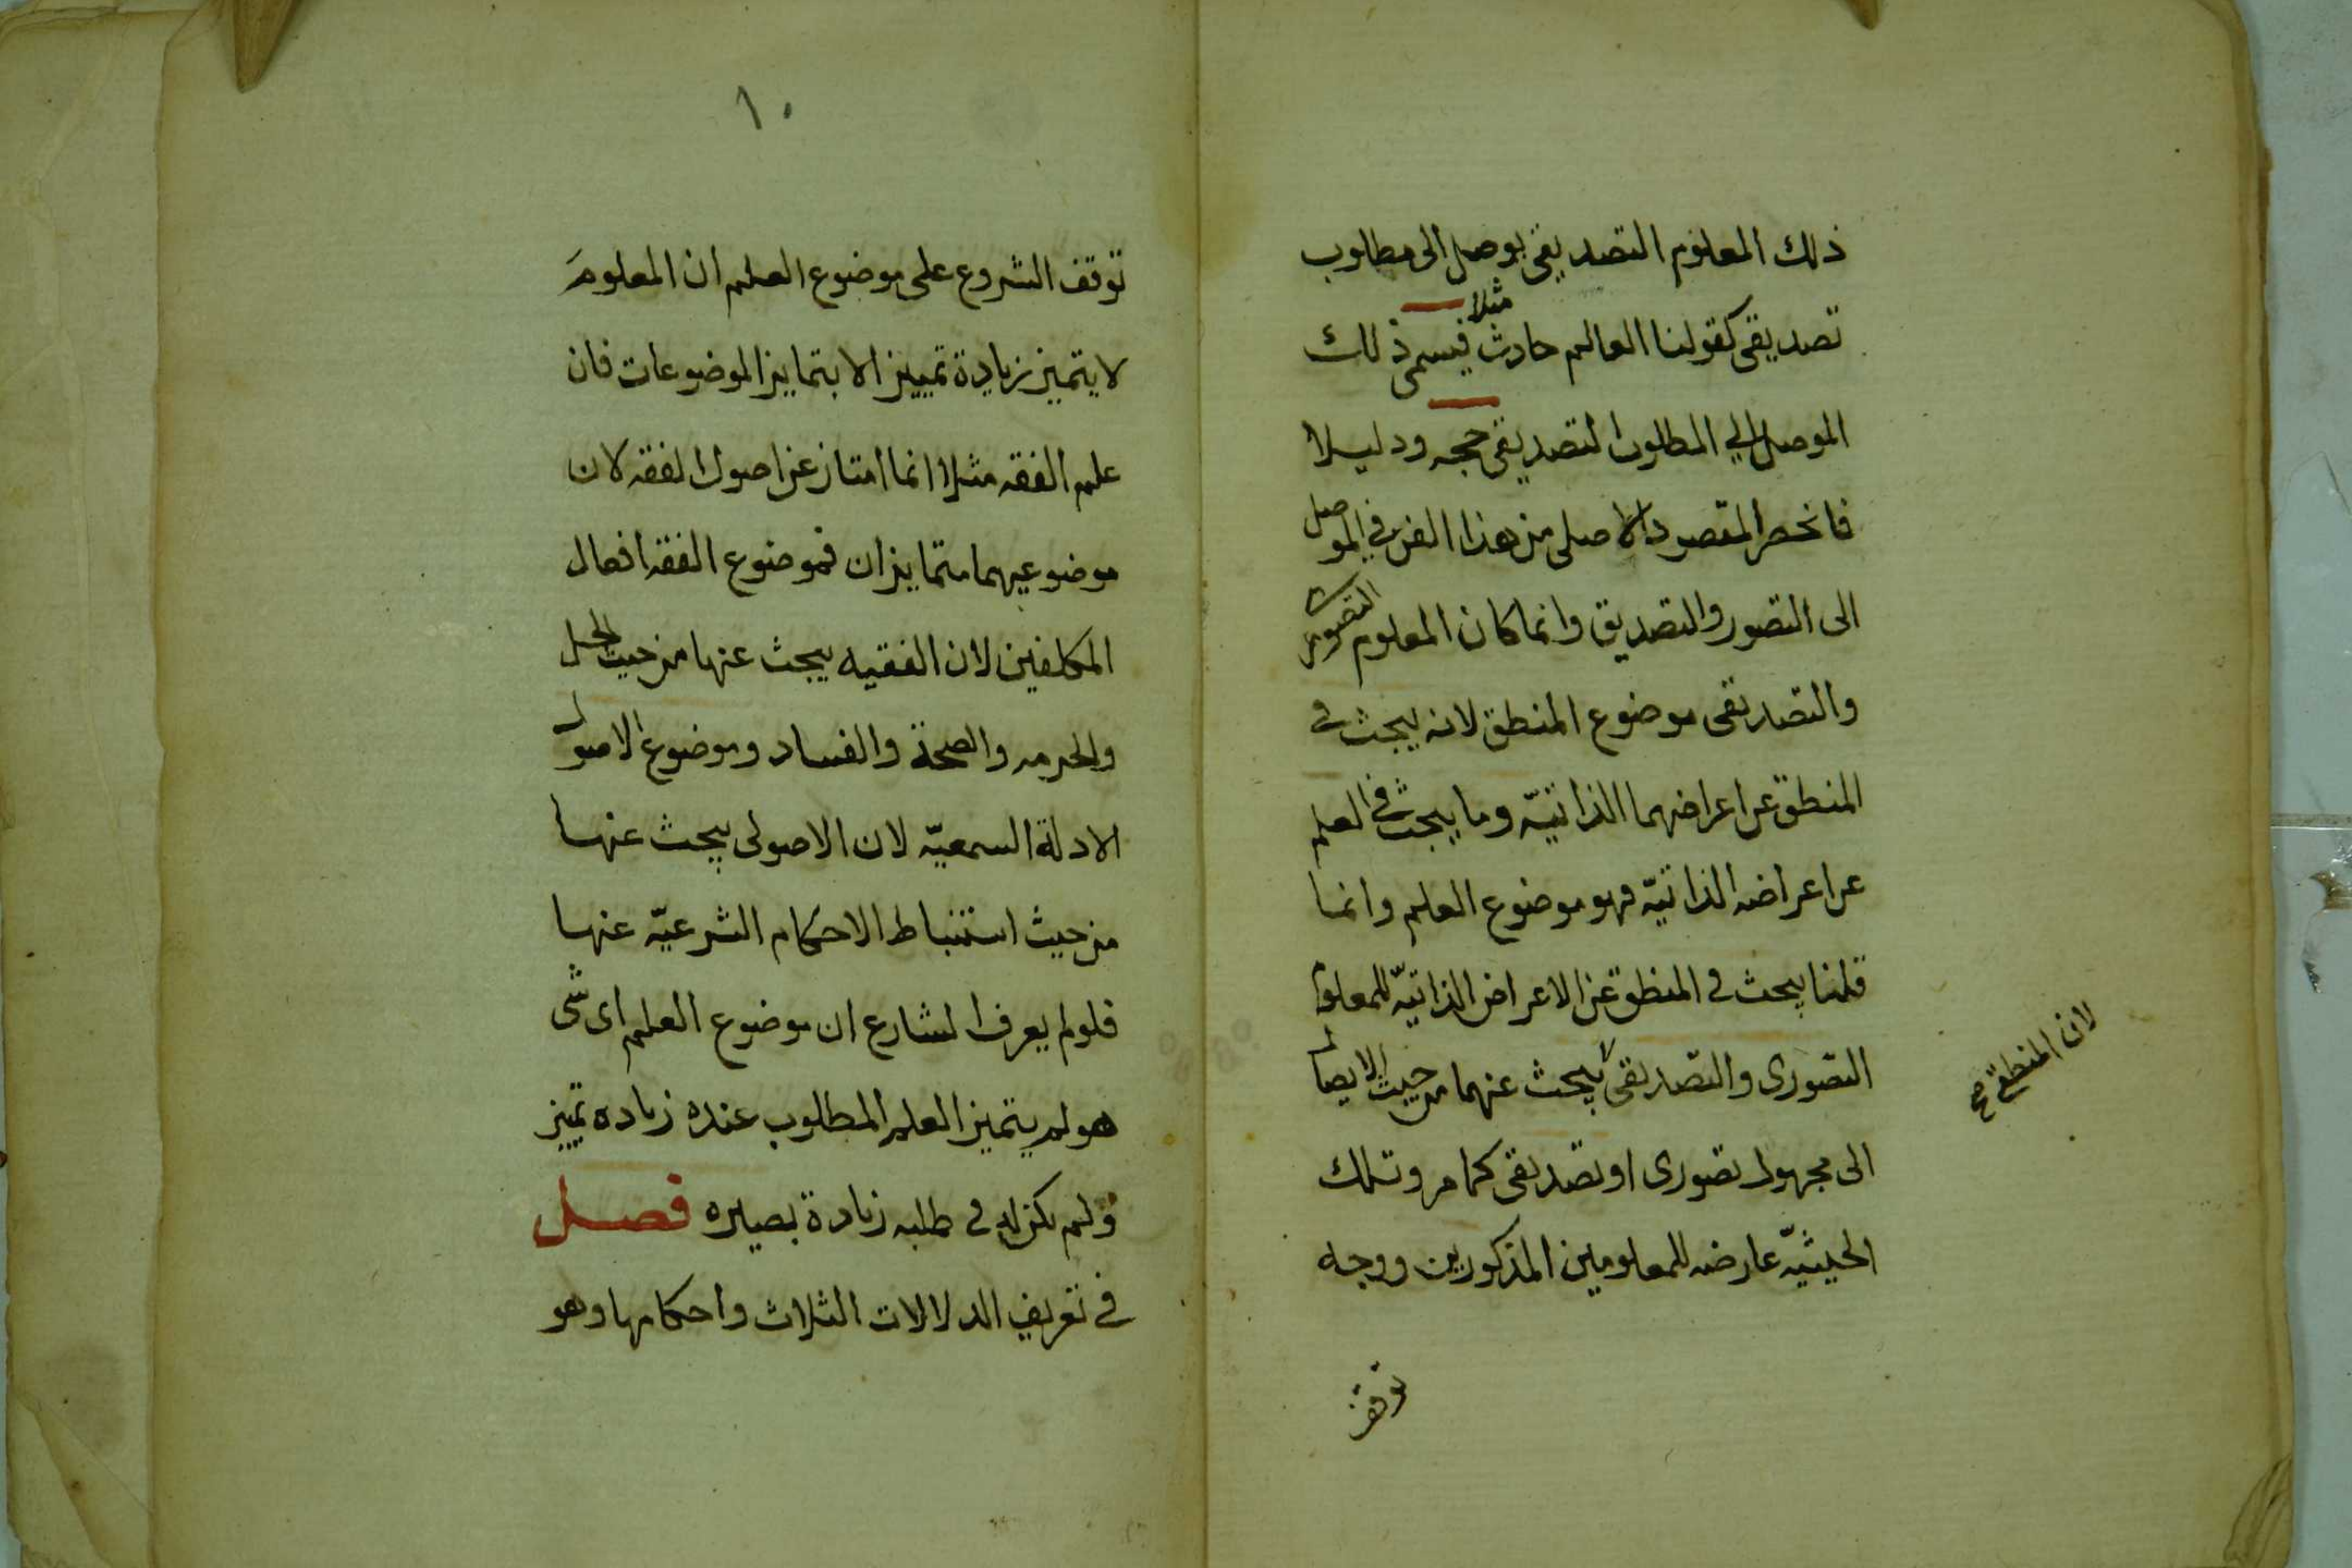 ذلك المعلوم التصديقى يوصل الى مطلوب
مثلا
تصديقى كقولنا العالم حادث فيسمى ذلك
الموصل الي المطلوب التصديقى حجه ودليلا
فانحصر المقصود الاصلى من هذا الفن في الموصل
الى التصور والتصديق وانما كان المعلوم التصورى
والتصديقى موضوع المنطق لانه يبحث فى
المنطق عن اعراضهما الذاتيّه وما يبحث في العلم
عن اعراضه الذاتيّه فهو موضوع العلم وانما
قلنا يبحث فى المنطق عن الاعراض الذاتيّه للمعلوم
التصورى والتصديقى يبحث عنهما من حيث الايصال
الى مجهول تصورى او تصديقى كما مر وتلك
الحيثيّه عارضه للمعلومين المذكورين ووجه
توقف
لان المنطقى صح
١٠
توقف الشروع على موضوع العلم ان المعلوم
لا يتميز زيادة تمييز الا بتمايز الموضوعات فان
علم الفقه مثلا انما امتاز عن اصول الفقه لان
موضوعيهما متمايزان فموضوع الفقه افعال
المكلفين لان الفقيه يبحث عنها من حيث الحل
والحرمه والصحة والفساد وموضوع الاصول
الادلة السمعيّه لان الاصولى يبحث عنها
من حيث استنباط الاحكام الشرعيّه عنها
فلو لم يعرف الشارع ان موضوع العلم اى شى
هو لم يتميز العلم المطلوب عنده زياده تمييز
ولم يكن له فى طلبه زيادة بصيره فصل
في تعريف الدلالات الثلاث واحكامها وهو